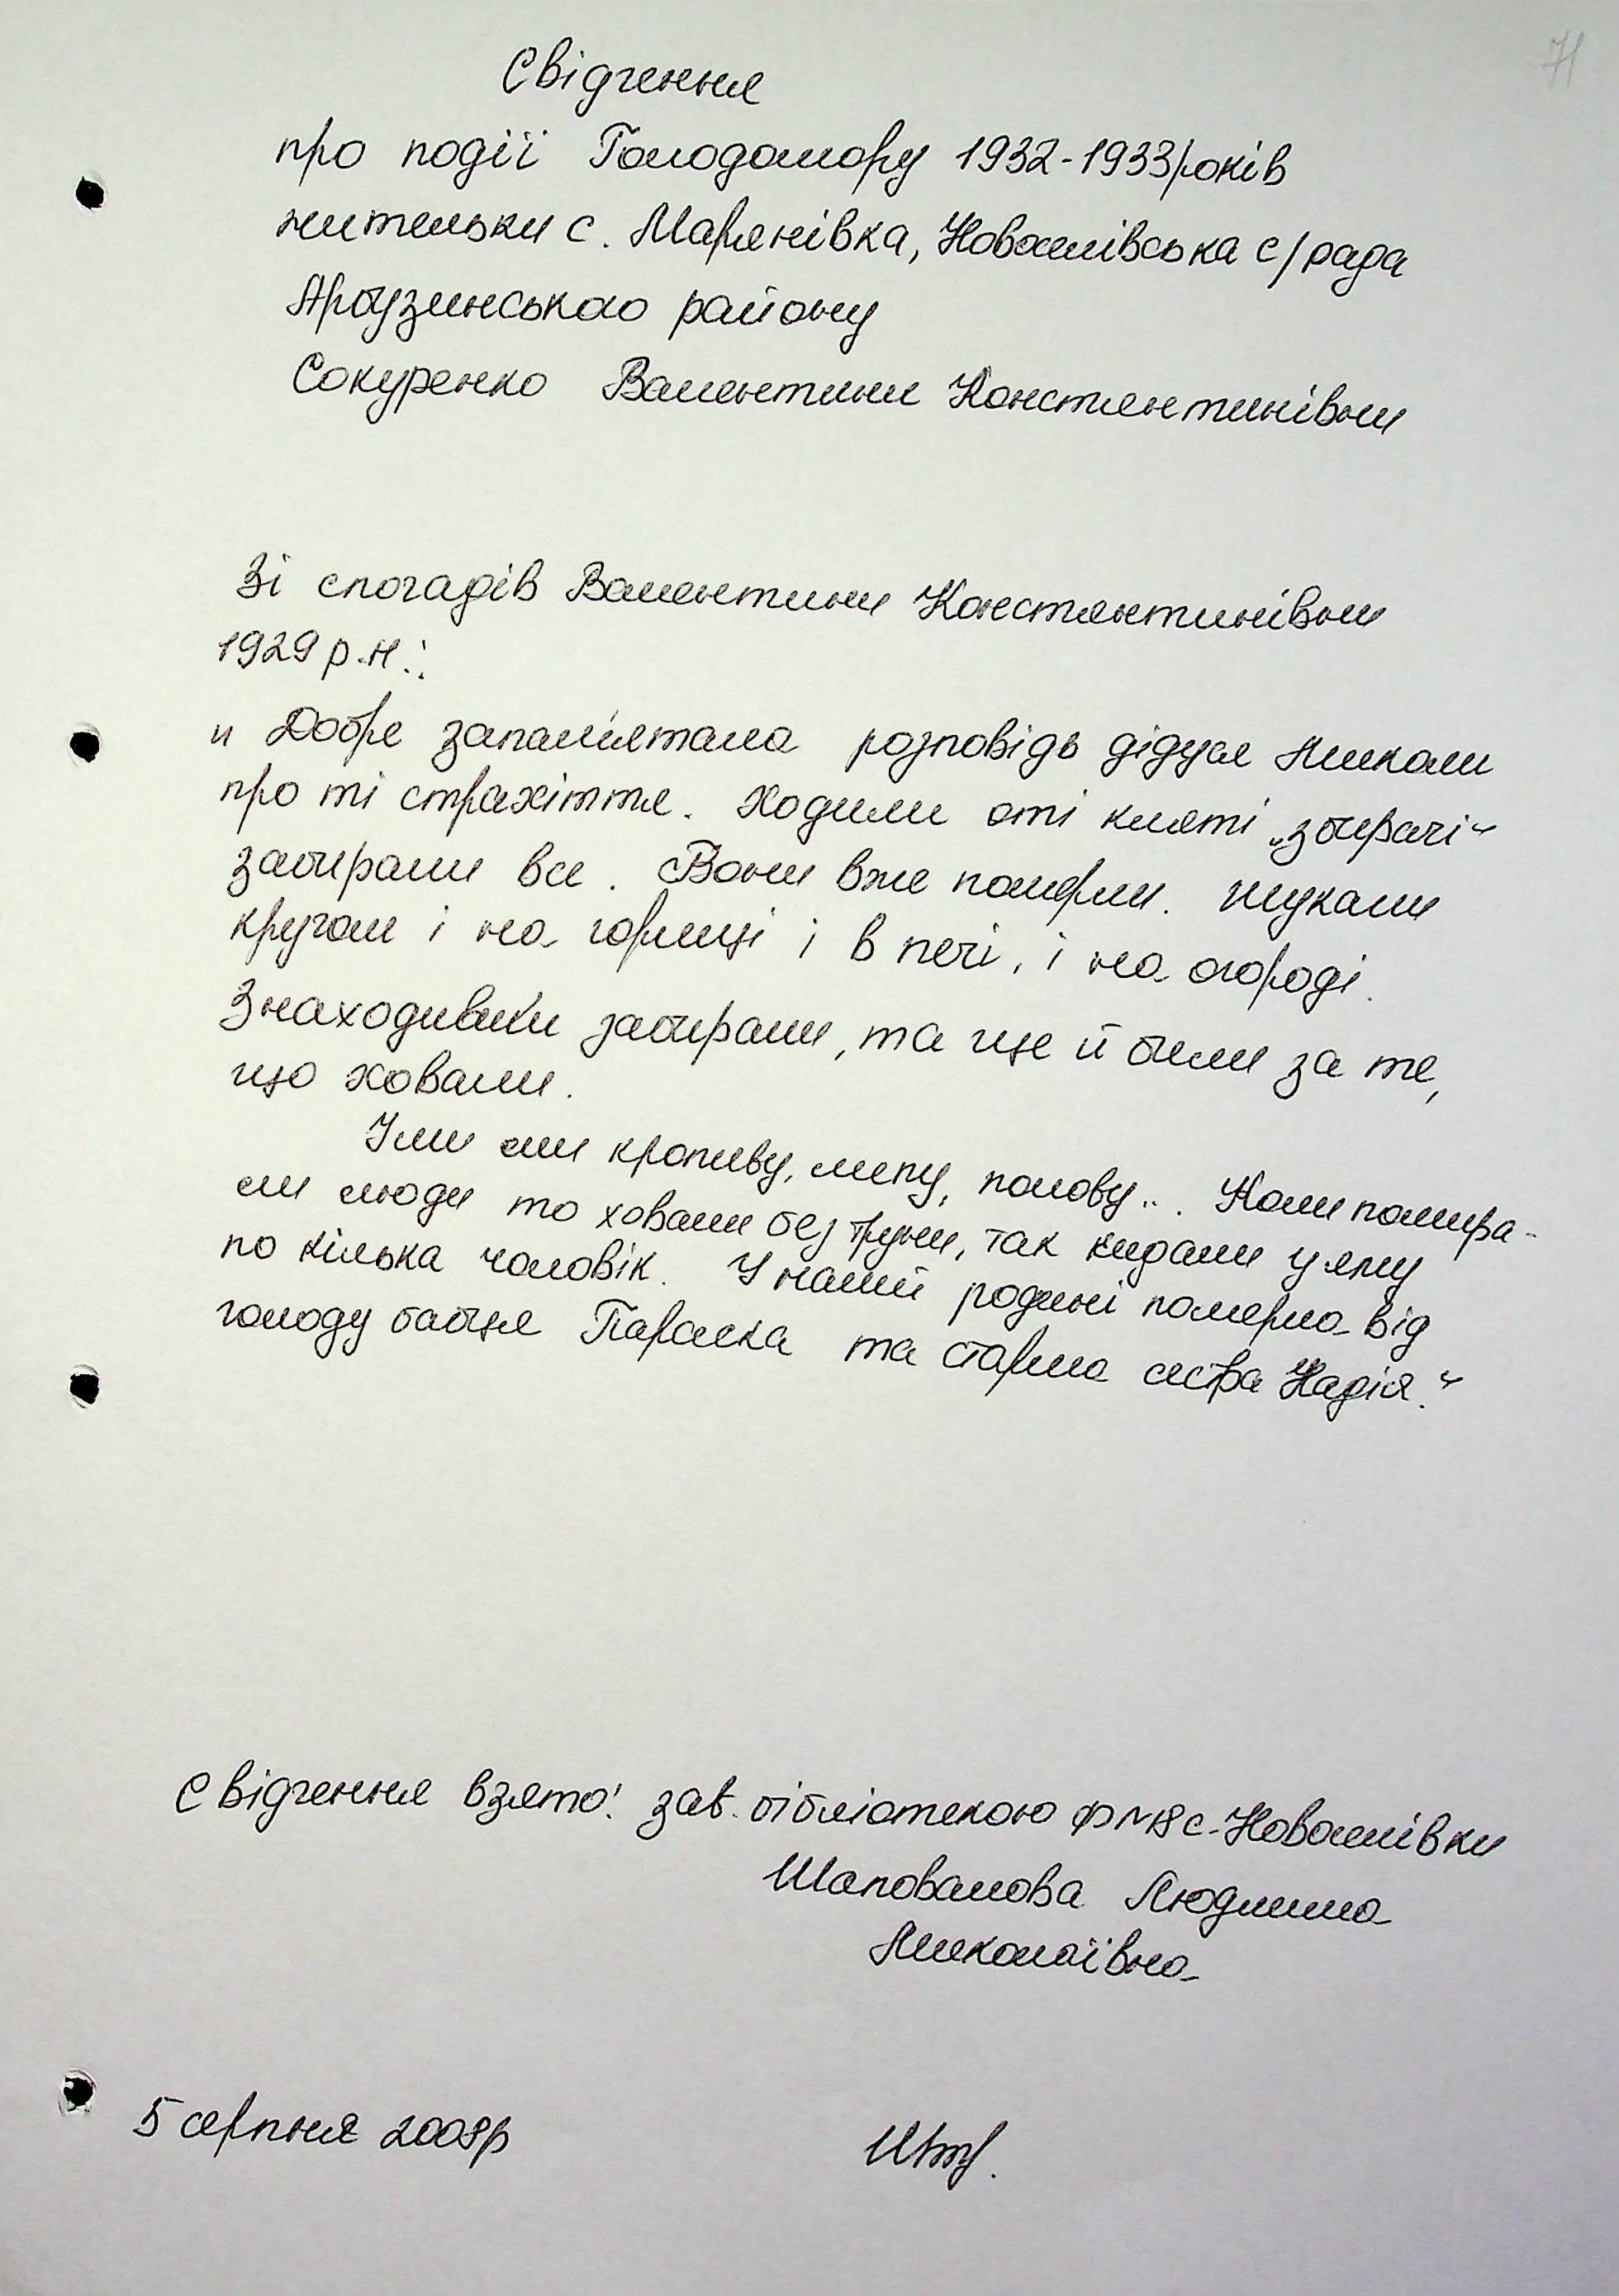 Свідчення
про події Голодомору 1932-1933 років
жительки с. Мар'янівка, Новоселівська с/рада
Арбузинськао району
Сокуренко Валентини Константинівни
Зі спогадів Валентини Константинівни
1929 р.н.:
" Добре запам'ятала розповідь дідуся Миколи
про ті страхіття. Ходили оті кляті „збирачі"
забирали все. Вони вже померли. Шукали
кругом і на горищі і в печі, і на огороді.
Знаходивши забирали, та ще й били за те,
що ховали.
Їли ми кропиву, липу, полову... Коли помира-
ли люди то ховали без труни, так кидали у яму
по кілька чоловік. У нашій родині померла від
голоду бабця Параска та старша сестра Надія."
Свідчення взято: зав. бібліотекою ф №18 с. Новоселівки
Шаповалова Людмила
Миколаївна
5 серпня 2008р